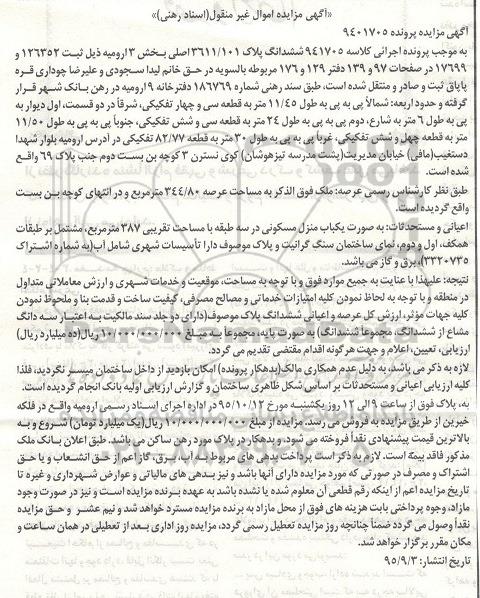 «آگهی مزایده اموال غیر منقول(اسناد رهنی)»
آگهی مزایده پرونده ۹۴۰۱۷۰۵
به موجب پرونده اجرائی کلاسه ۹۴۱۷۰۵ ششدانگ پلاک ۳۶۱۱/۱۰۱ اصلی بخش ۳ ارومیه ذیل ثبت ۱۲۶۳۵۲ و
۱۷۶۹۹ در صفحات ۹۷ و ۱۳۹ دفتر ۱۲۹ و ۱۷۶ مربوطه بالسویه در حق خانم لیدا سجودی و علیرضا چوداری قره
پاپاق ثبت و صادر و منتقل شده است، طبق سند رهنی شماره ۱۸۶۷۶۹ دفترخانه ۹ ارومیه در رهن بانک شهر قرار
گرفته و حدود اربعه: شمالاً پی به پی به طول ۱۱/۴۵ متر به قطعه سی و چهار تفکیکی، شرقاً در دو قسمت، اول دیوار به
پی به طول ۶ متر به شارع، دوم پی به پی به طول ۲۴ متر به قطعه سی و شش تفکیکی، جنوباً پی به پی به طول ۱۱/۵۰
متر به قطعه چهل و شش تفکیکی، غرباً پی به پی به طول ۳۰ متر به قطعه ۸۲/۷۷ تفکیکی در آدرس ارومیه بلوار شهدا
دستغیب(مافی) خیابان مدیریت(پشت مدرسه تیزهوشان) کوی نسترن ۳ کوچه بن بست دوم جنب پلاک ۶۹ واقع
شده است.
طبق نظر کارشناس رسمی عرصه: ملک فوق الذکر به مساحت عرصه ۳۴۴/۸۰ مترمربع و در انتهای کوچه بن بست
واقع گردیده است.
اعیانی و مستحدثات: به صورت یکباب منزل مسکونی در سه طبقه با مساحت تقریبی ۳۸۷ مترمربع، مشتمل بر طبقات
همکف، اول و دوم، نمای ساختمان سنگ گرانیت و پلاک موصوف دارا تأسیسات شهری شامل آب(به شماره اشتراک
۳۳۲۰۷۳۵)، برق و گاز می باشد.
نتیجه: علیهذا با عنایت به جمیع موارد فوق و با توجه به مساحت، موقعیت و خدمات شهری و ارزش معاملاتی متداول
در منطقه و با توجه به لحاظ نمودن کلیه امتیازات خدماتی و مصالح مصرفی، کیفیت ساخت و قدمت بنا و ملحوظ نمودن
کلیه جهات مؤثر، ارزش کل عرصه و اعیانی ششدانگ پلاک موصوف(دارای دو جلد سند مالکیت به اعتبار سه دانگ
مشاع از ششدانگ، مجموعاً ششدانگ) به صورت پایه، مجموعاً به مبلغ ۱۰/۰۰۰/۰۰۰/۰۰۰ ریال(ده میلیارد ریال)
ارزیابی، تعیین، اعلام و جهت هرگونه اقدام مقتضی تقدیم می گردد.
لازم به ذکر می باشد، به دلیل عدم همکاری مالک(بدهکار پرونده) امکان بازدید از داخل ساختمان میسر نگردید، فلذا
کلیه ارزیابی اعیانی و مستحدثات بر اساس شکل ظاهری ساختمان و گزارش ارزیابی اولیه بانک انجام گردیده است.
به، پلاک فوق از ساعت ۹ الی ۱۲ روز یکشنبه مورخ ۹۵/۱۰/۱۲ در اداره اجرای اسناد رسمی ارومیه واقع در فلکه
خیبرین از طریق مزایده به فروش می رسد. مزایده از مبلغ ۱۰/۰۰۰/۰۰۰/۰۰۰ ریال(یک میلیارد تومان) شروع و به
بالاترین قیمت پیشنهادی نقداً فروخته می شود. و بدهکار در پلاک مورد رهن ساکن می باشد. طبق اعلان بانک ملک
مذکور فاقد بیمه است. لازم به ذکر است پرداخت بدهی های مربوط به آب، برق، گاز اعم از حق انشعاب و یا حق
اشتراک و مصرف در صورتی که مورد مزایده دارای آنها باشد و نیز بدهی های مالیاتی و عوارض شهرداری و غیره تا
تاریخ مزایده اعم از اینکه رقم قطعی آن معلوم شده یا نشده باشد به عهده برنده مزایده است و نیز در صورت وجود
مازاد، وجوه پرداختی بابت هزینه های فوق از محل مازاد به برنده مزایده مسترد خواهد شد و نیم عشر و حق مزایده
نقداً وصول می گردد ضمناً چنانچه روز مزایده تعطیل رسمی گردد، مزایده روز اداری بعد از تعطیلی در همان ساعت و
مکان مقرر برگزار خواهد شد.
تاریخ انتشار: ۹۵/۹/۳